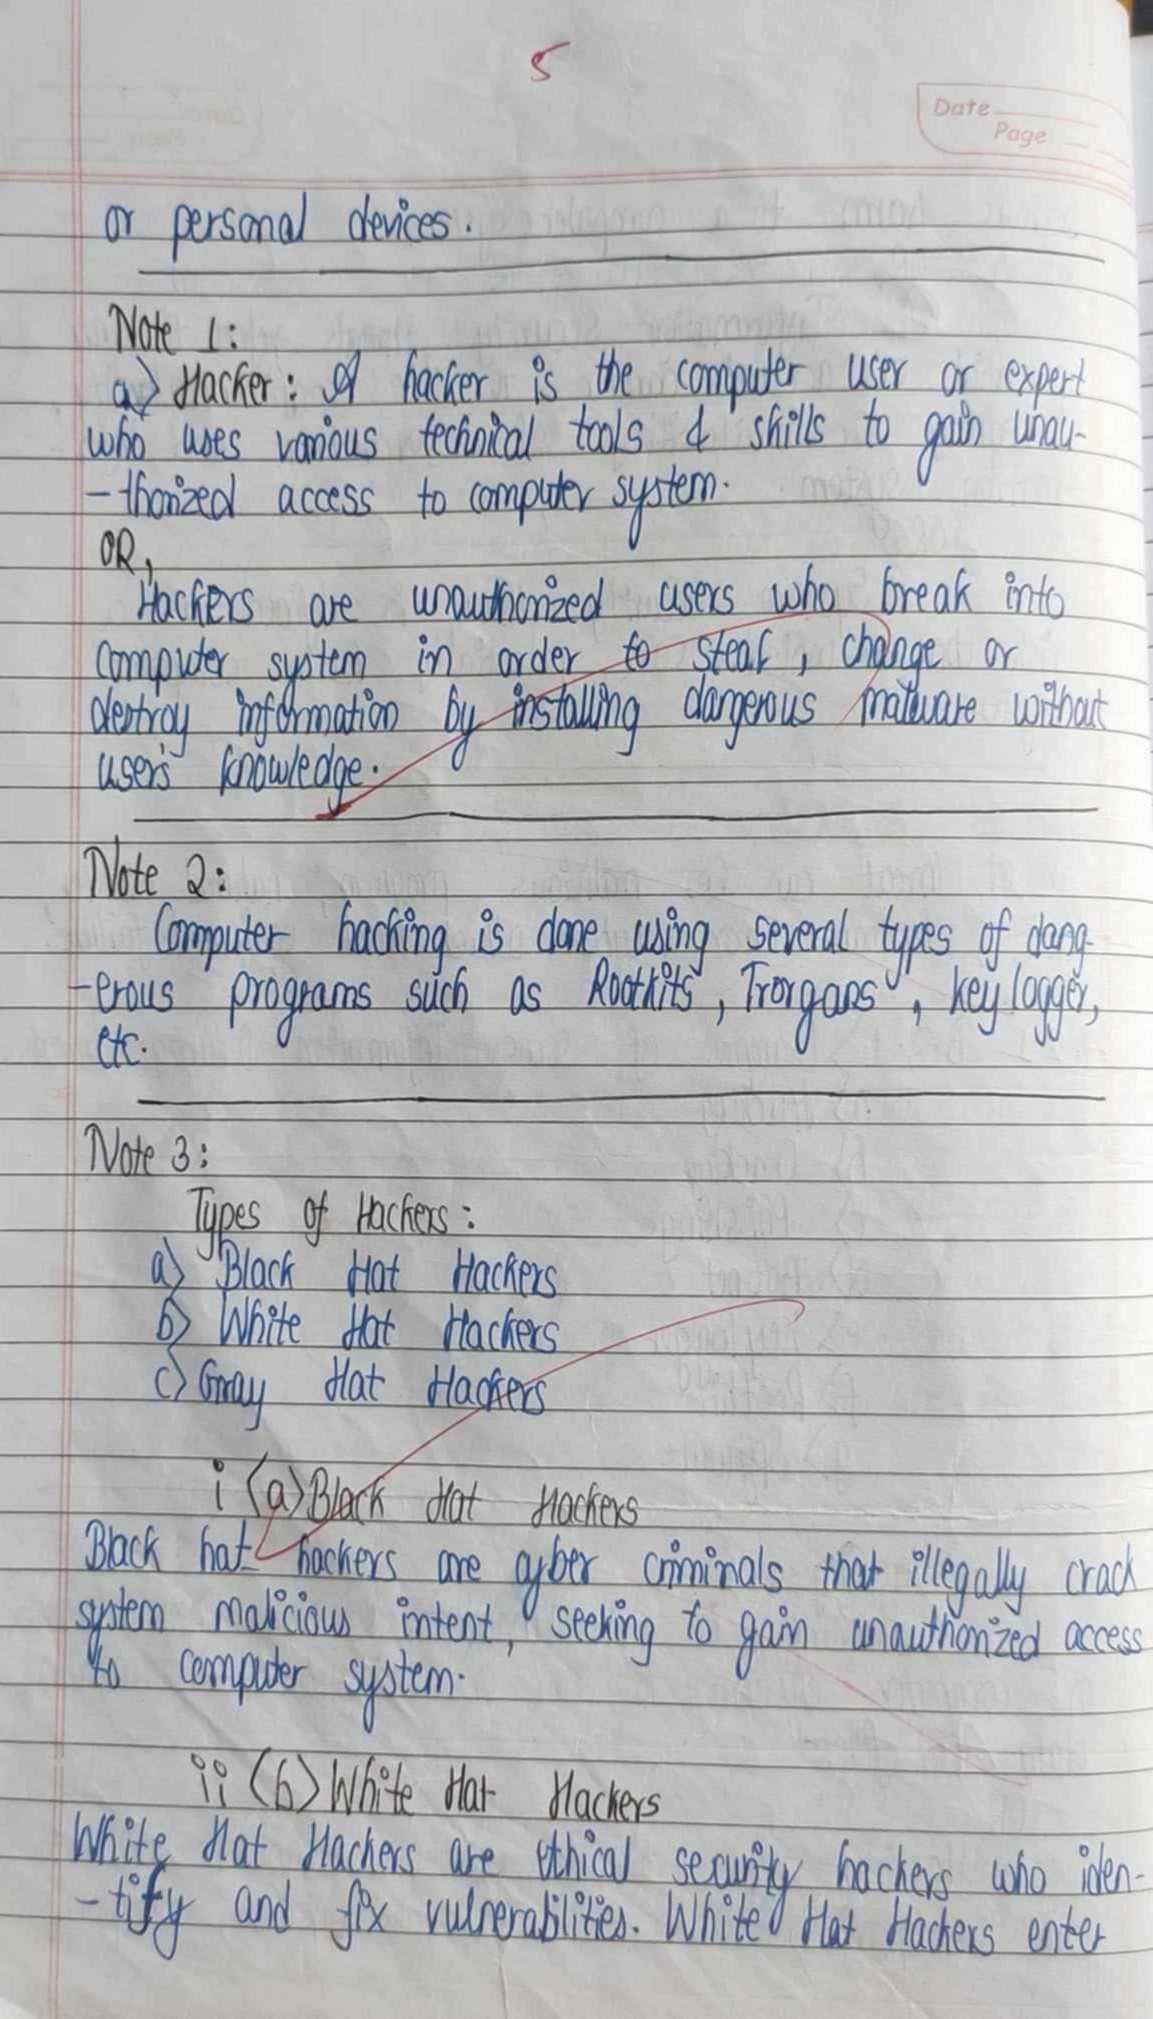 5
Date
Page
or personal devices.
Note 1:
a) Hacker: A hacker is the computer user or expert
who uses various technical tools & skills to gain unau-
-thorized access to computer system.
OR,
Hackers are unauthorized users who break into
computer system in order to steal, change or
destroy information by installing dangerous malware without
users' knowledge.
Note 2:
Computer hacking is done using several types of dang-
-erous programs such as Rootkits, Trorgans, key logger,
etc.
Note 3:
Types of Hackers:
a) Black Hat Hackers
b) White Hat Hackers
c) Gray Hat Hackers
i (a) Black Hat Hackers
Black hat hackers are cyber criminals that illegally crack
system malicious intent, seeking to gain unauthorized access
to computer system.
ii (b) White Hat Hackers
White Hat Hackers are ethical security hackers who iden-
-tify and fix vulnerabilities. White Hat Hackers enter